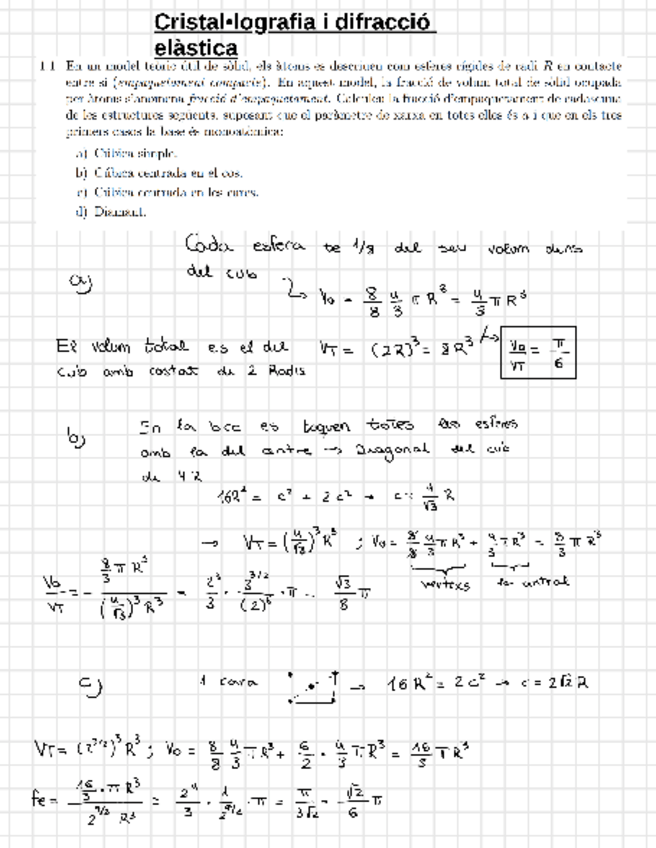 Cristal•lografia i difracció
elàstica
1.1 En un model teòric útil de sòlid, els àtoms es descriuen com esferes rígides de radi R en contacte
entre si (empaquetament compacte). En aquest model, la fracció de volum total de sòlid ocupada
per àtoms s'anomena fracció d'empaquetament. Calculeu la fracció d'empaquetament de cadascuna
de les estructures següents, suposant que el paràmetre de xarxa en totes elles és a i que en els tres
primers casos la base és monoatòmica:
a) Cúbica simple.
b) Cúbica centrada en el cos.
c) Cúbica centrada en les cares.
d) Diamant.
Cada esfera te 1/8 del seu volum dins
del cub
a) Vo = 8/8 4/3 π R³ = 4/3 π R³
El volum total es el del VT = (2R)³ = 8R³ → Vo/VT = π/6
cub amb costat de 2 Radis
b) En la bcc es toquen totes les esferes
amb la del centre → Diagonal del cub
de 4R
16R² = c² + 2c² → c = 4/√3 R
→ VT = (4/√3)³ R³ ; Vo = 8/8 4/3 π R³ + 4/3 π R³ = 8/3 π R³
vertexs la central
Vo/VT = (8/3 π R³)/((4/√3)³ R³) = 2³/3 · 3^{3/2}/(2)⁶ · π = √3/8 π
c) 1 cara → 16R² = 2c² → c = 2√2 R
VT = (2^{3/2})³ R³ ; Vo = 8/8 4/3 π R³ + 6/2 · 4/3 π R³ = 16/3 π R³
fe = (16/3 · π R³)/(2^{9/2} R³) = 2⁴/3 · 1/2^{9/2} · π = π/3√2 = √2/6 π